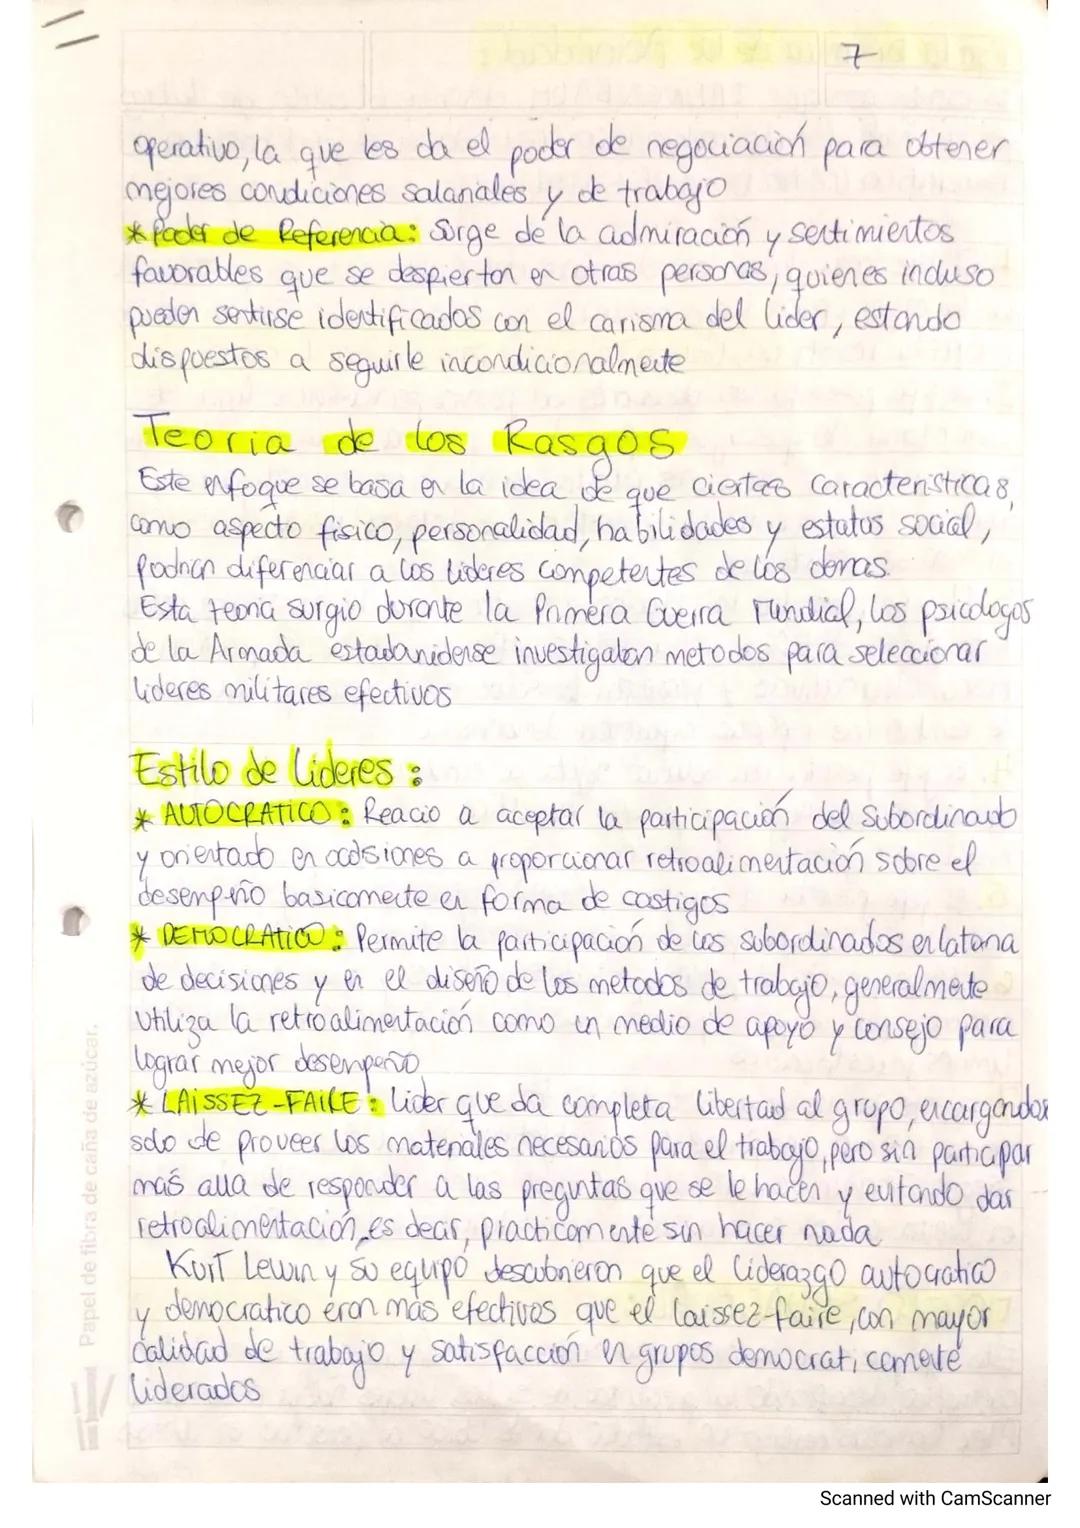 7
operativo, la que les da el poder de negociación para obtener
mejores condiciones salariales y de trabajo
* Poder de Referencia: Surge de la admiración y sentimientos
favorables que se despierton en otras personas, quienes incluso
pueden sentirse identificados con el carisma del líder, estando
dispuestos a seguirle incondicionalmente
Teoria de los Rasgos
Este enfoque se basa en la idea de que ciertas caracteristicas,
como aspecto fisico, personalidad, habilidades y estatus social,
podrian diferenciar a los lideres competentes de los demas.
Esta teoria surgio durante la Primera Guerra Mundial, los psicologos
de la Armada estadanidense investigaban metodos para seleccionar
lideres militares efectivos
Estilo de Lideres:
* AUTOCRATICO: Reacio a aceptar la participación del Subordinado
y orientado en ocasiones a proporcionar retroalimentación sobre el
desempeño basicamente en forma de castigos
* DEMOCRATICO: Permite la participación de los subordinados en la toma
de decisiones y en el diseño de los metodos de trabajo, generalmente
utiliza la retroalimentación como un medio de apoyo y consejo para
lograr mejor desempeño
* LAISSEZ-FAIRE: Lider que da completa libertad al grupo, encargandose
solo de proveer los materiales necesarios para el trabajo, pero sin participar
más alla de responder a las preguntas que se le hacen y evitando dar
retroalimentación, es decir, practicamente sin hacer nada
Kurt Lewin y su equipo descubrieron que el liderazgo autocratico
y democratico eran más efectivos que el laissez-faire, con mayor
calidad de trabajo y satisfacción en grupos democraticamente
liderados
Papel de fibra de caña de azúcar.
Scanned with CamScanner